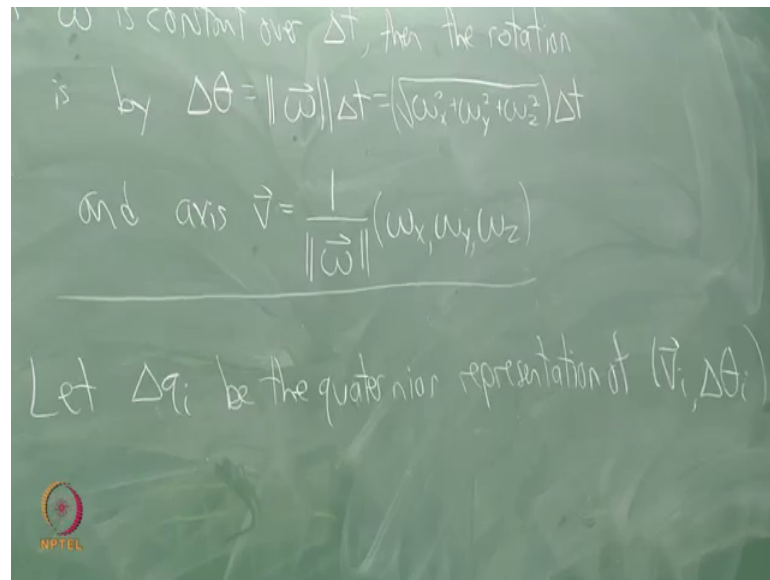 ω is constant over Δt, then the rotation
is by Δθ = ||ω⃗||Δt = (√ωx²+ωy²+ωz²)Δt
and axis v⃗ = 1/||ω⃗|| (ωx, ωy, ωz)
Let Δqi be the quaternion representation of (v⃗i, Δθi)
NPTEL